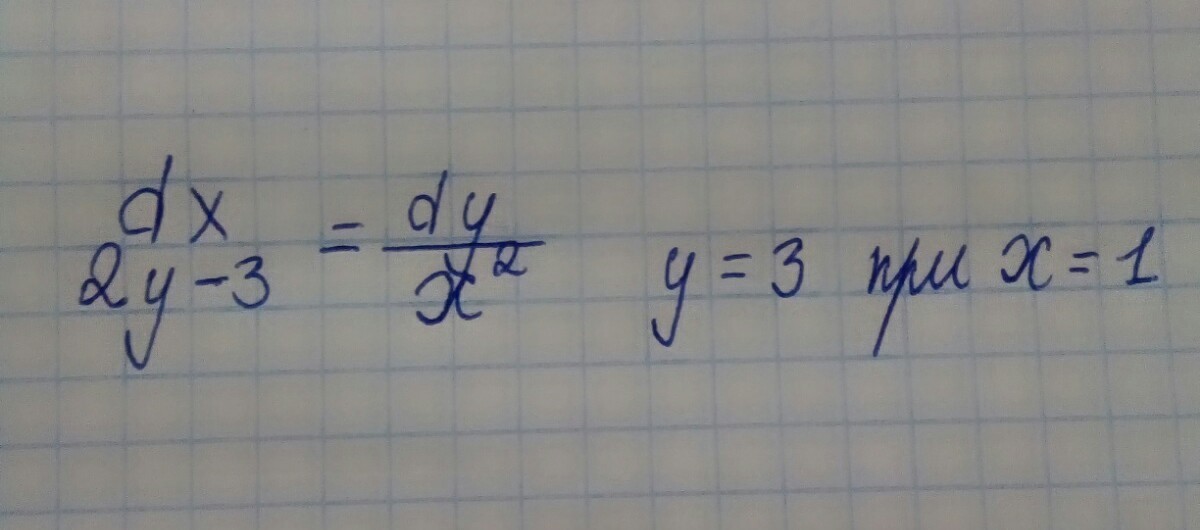 dx/2y-3 = dy/x² y = 3 при x = 1